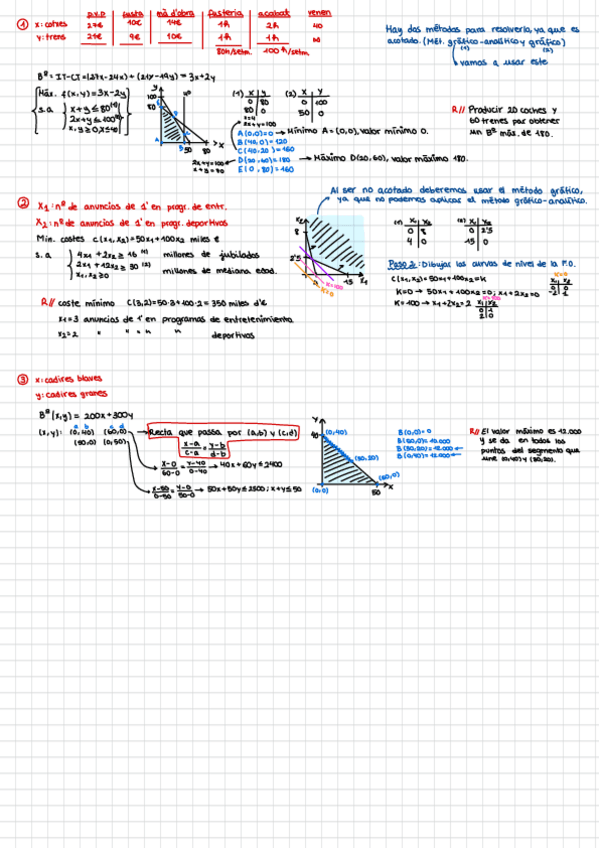 ① x: cotxes
y: trens
p.v.p fusta mà d'obra fusteria acabat venen
27€ 10€ 14€ 1h 2h 40
21€ 9€ 10€ 1h 1h ∞
80h/setm. 100 h/setm.
Hay dos métodos para resolverlo, ya que es
acotado. (Mét. gráfico-analítico y gráfico)
(1) (2)
vamos a usar este
Bº = IT-CT = (27x-24x) + (21y-19y) = 3x+2y
Máx. f(x,y)=3x-2y
s.a
x+y≤80 (1)
2x+y≤100 (2)
x,y≥0, x≤40
100
80
40
50 80
2x+y=100
x+y=80
(1) x y
0 80
80 0
(2) x y
0 100
50 0
x=40
2x+y=100
A(0,0)=0 → Mínimo A=(0,0), valor mínimo 0.
B(40,0)=120
C(40,20)=160
D(20,60)=180 → Máximo D(20,60), valor máximo 180.
E(0,80)=160
R// Producir 20 coches y
60 trenes par obtener
un Bº máx. de 180.
② X1: nº de anuncios de 1' en progr. de entr.
X2: nº de anuncios de 1' en progr. deportivos
Min. costes c(x1,x2)=50x1+100x2 miles €
s.a
4x1+2x2≥16 (1) millones de jubilados
2x1+12x2≥30 (2) millones de mediana edad.
x1,x2≥0
R// coste mínimo C(3,2)=50·3+100·2=350 miles d'€
x1=3 anuncios de 1' en programas de entretenimiento.
x2=2 " " " " deportivos
Al ser no acotado deberemos usar el método gráfico,
ya que no podemos aplicar el método gráfico-analítico.
x2
8
2'5
4 15 x1
K=100
K=0
(1) x1 x2
0 8
4 0
(2) x1 x2
0 2'5
15 0
Paso 2: Dibujar las curvas de nivel de la F.O.
C(x1,x2)=50x1+100x2=K
K=0 → 50x1+100x2=0; x1+2x2=0
K=0
x1 x2
0 0
-2 1
K=100 → x1+2x2=2
K=100
x1 x2
0 1
2 0
③ x: cadires blaves
y: cadires granes
Bº(x,y) = 200x+300y
a b c d
(x,y): (0,40) (60,0) → Recta que passa por (a,b) y (c,d)
(50,0) (0,50)
x-a/c-a = y-b/d-b
x-0/60-0 = y-40/0-40 → 40x+60y≤2400
x-50/0-50 = y-0/50-0 → 50x+50y≤2500; x+y≤50
y
40
(0,40)
(30,20)
(60,0)
(0,0) 50 x
B(0,0)=0
B(50,0)=10.000
B(30,20)=12.000
B(0,40)=12.000
R// El valor máximo es 12.000
y se da en todos los
puntos del segmento que
une (0,40) y (30,20).